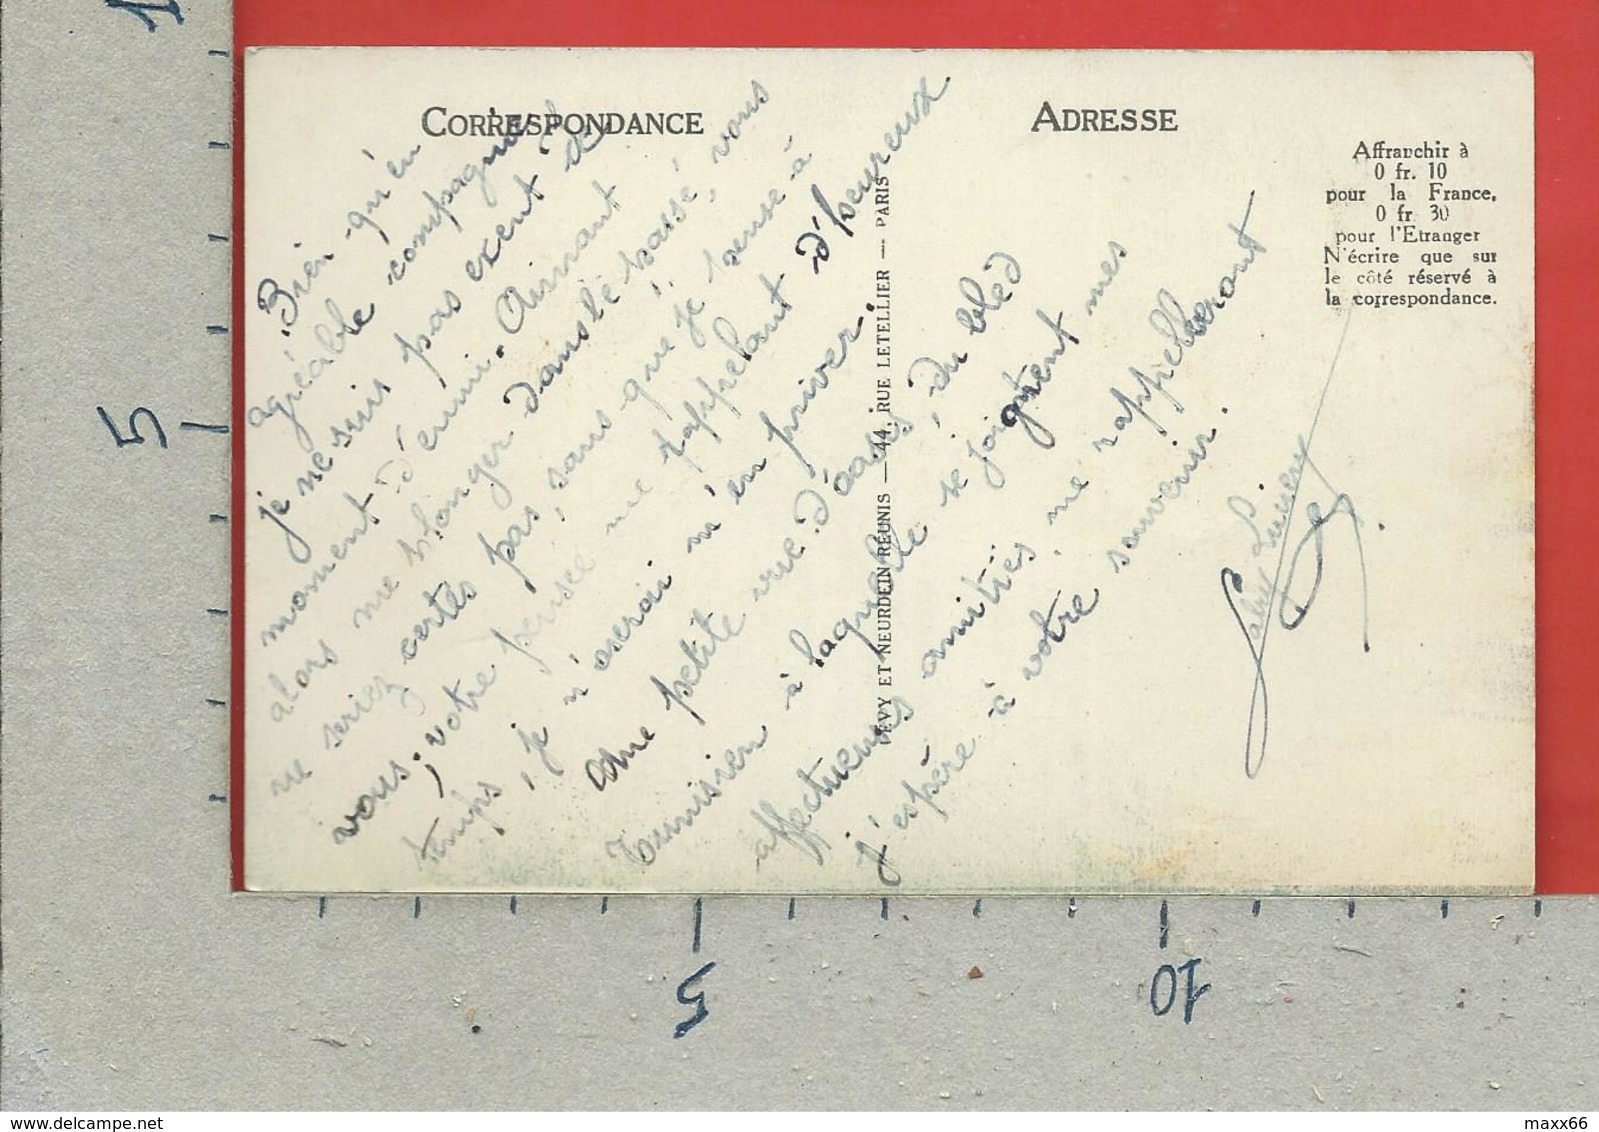 CORRESPONDANCE
ADRESSE
Affranchir à
0 fr. 10
pour la France,
0 fr. 30
pour l'Etranger
N'écrire que sur
le côté réservé à
la correspondance.
LEVY ET NEURDEIN REUNIS — 44, RUE LETELLIER — PARIS
Bien qu'en
agréable compagnie
je ne suis pas exent de
moment d'ennui. Aimant
alors me plonger dans le passé, vous
ne seriez certes pas, sans que je pense à
vous; votre pensée me rappelant d'heureux
temps, je n'oserai m'en priver.
Une petite vue d'oasis, du blèd
Tunisien à laquelle se joignent mes
affectueuses amitiés, me rappelleront
j'espère à votre souvenir.
Lucien
5
5
10
delcampe.net
maxx66